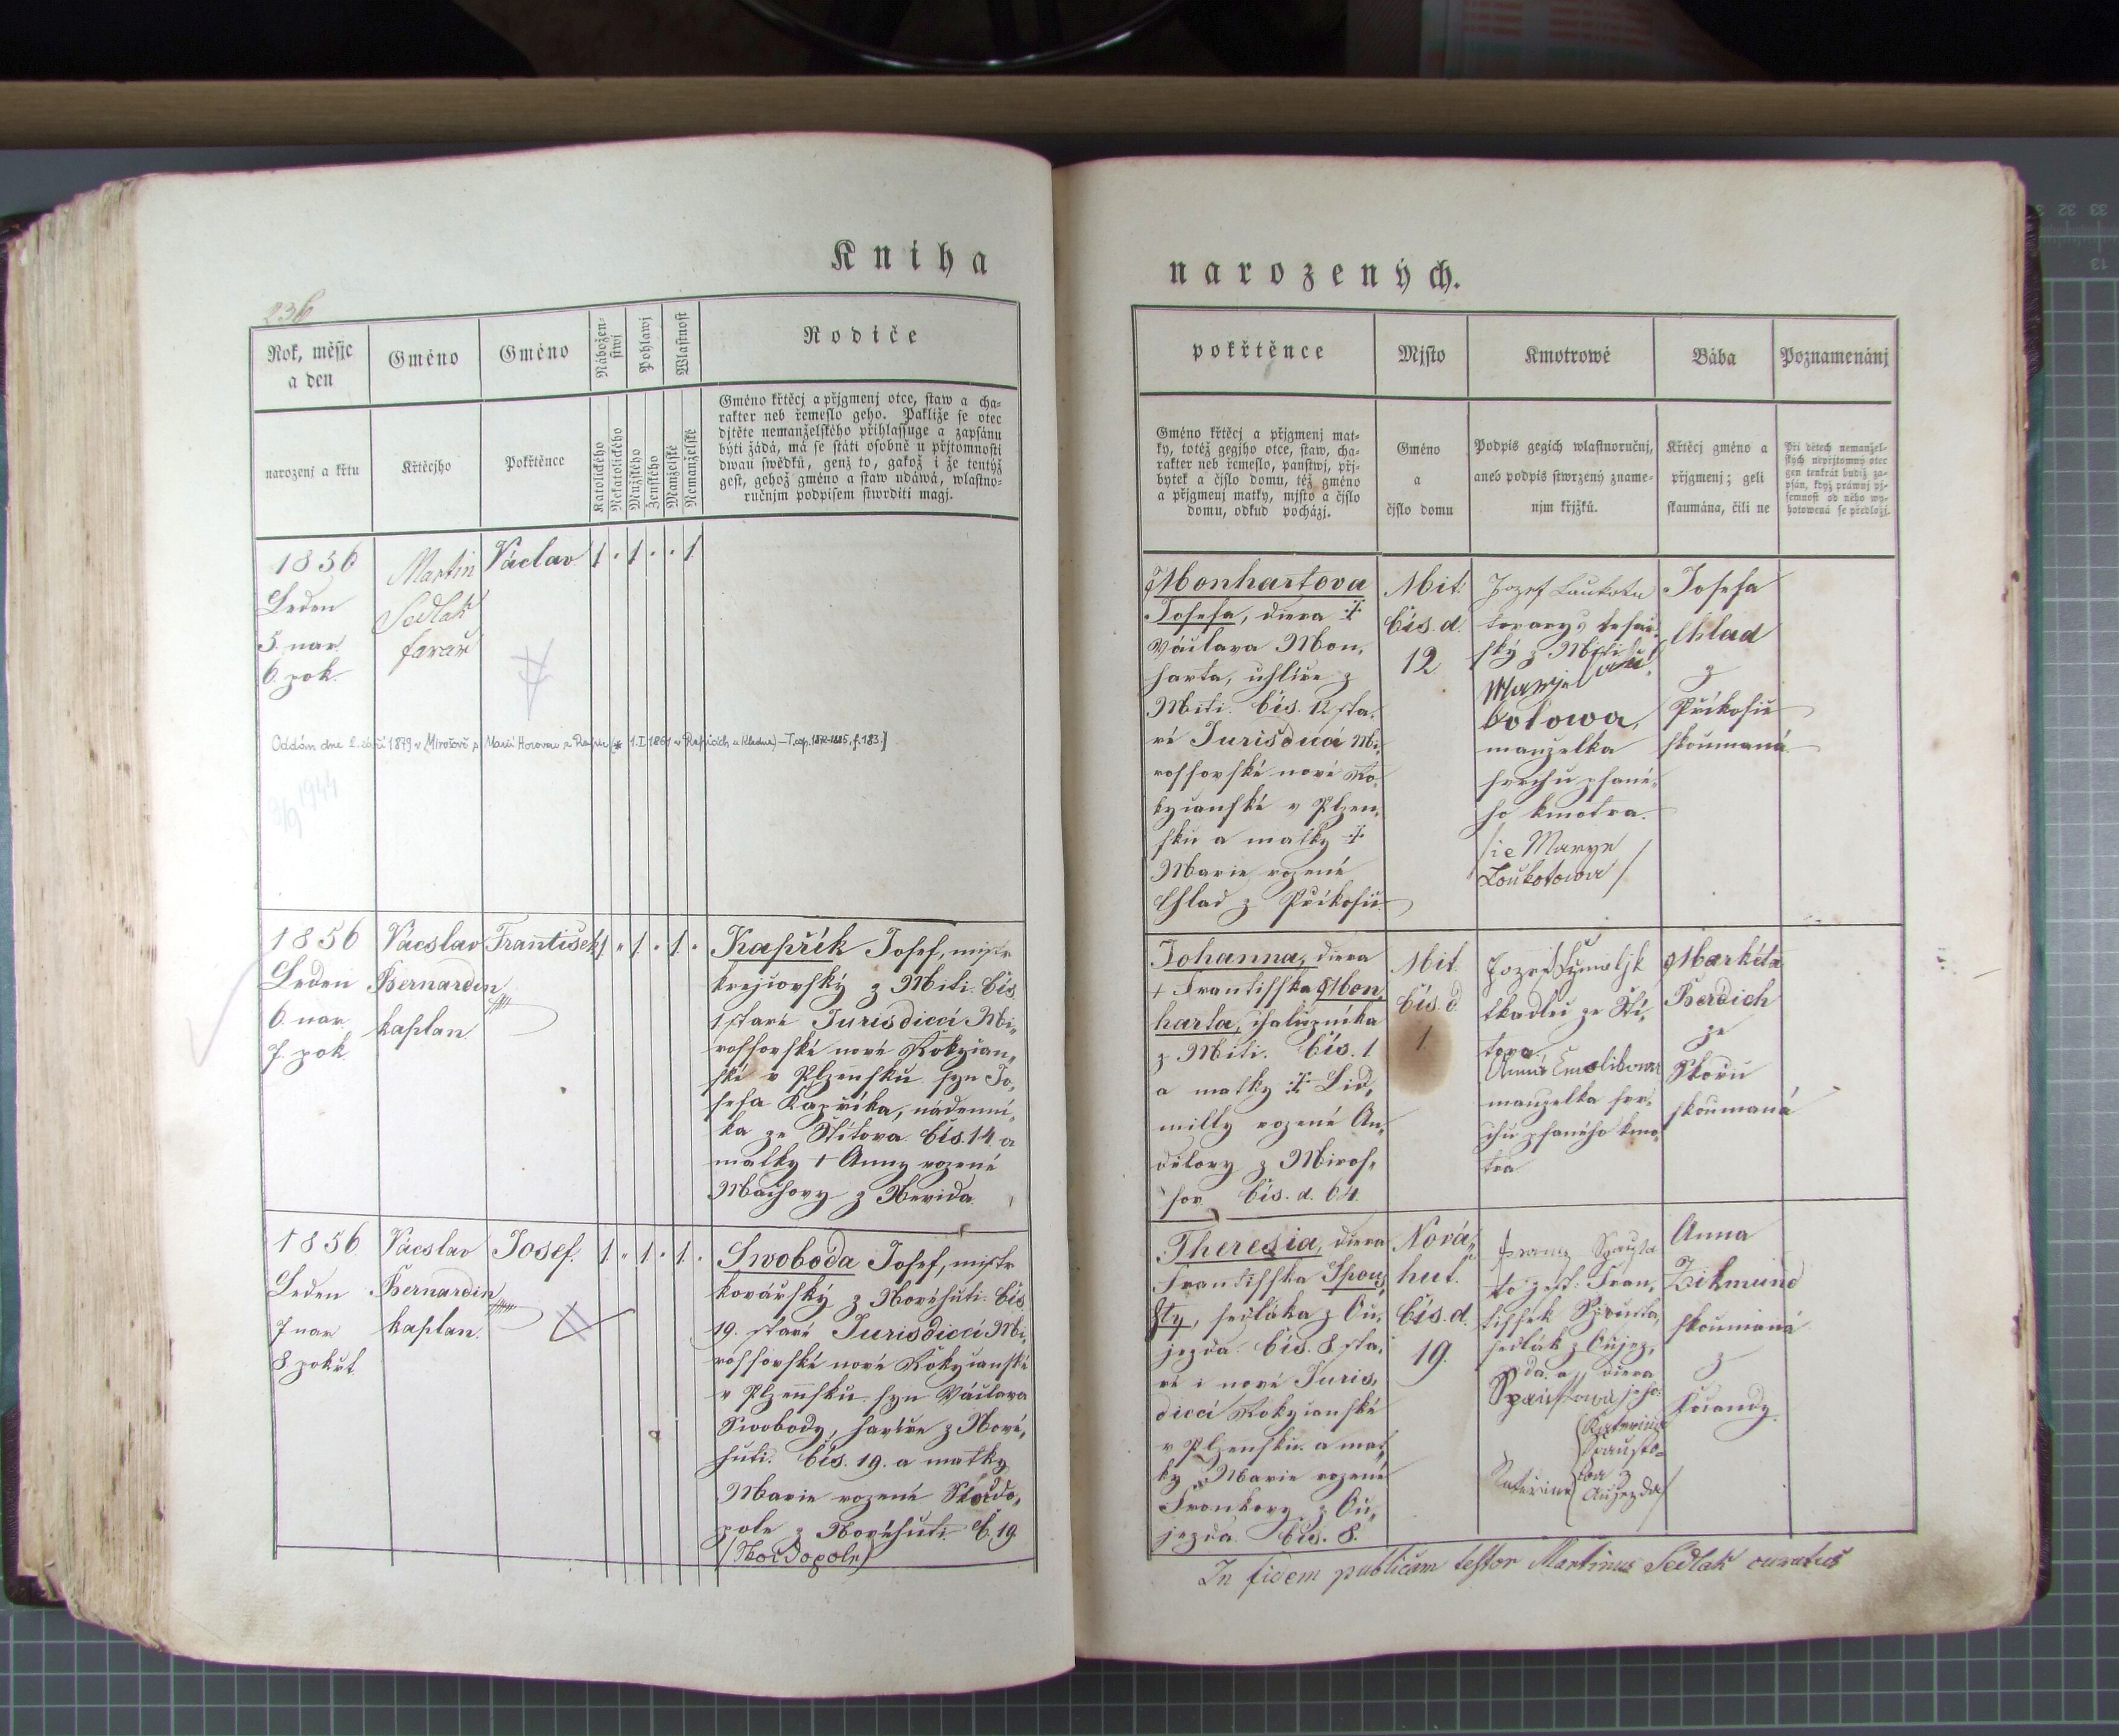 Kniha
236
Rok, měsjc
a den
Gméno
Gméno
Nábožen-
stwi
Pohlawj
Wlastnost
Rodiče
narozenj a křtu
Křtěcjho
Pokřtěnce
Katolického
Nekatolického
Mužského
Ženského
Manželské
Nemanželské
Gméno křtěcj a přjgmenj otce, staw a cha-
rakter neb řemeslo geho. Pakliže se otec
djtěte nemanželského přihlassuge a zapsánu
býti žádá, má se státi osobně u přjtomnosti
dwau swědků, genž to, gakož i že tentýž
gest, gehož gméno a staw udáwá, wlastno-
ručnjm podpisem stwrditi magj.
1856
Leden
5. nar.
6. pok.
Martin
Sedlak
farař
Václav
1 . 1 . . 1
Oddán dne 2. září 1879 v Mirošově s Marií
1944
1856
Leden
6. nar.
7. pok.
Vácslav
Bernardin
kaplan
František
1. " 1. " 1. "
Kapřík Josef, mistr
krejčovský z Miti. čís.
1 staré Jurisdicci Mi-
rossovské nové Rokycan-
ské v Plzeňsku. syn Jo-
sefa Kapříka, nádenní-
ka ze Štítova. čís. 14 a
matky + Anny rozené
Machovy z Nevida
1856.
Leden
7 nar
8 pokřt.
Vácslav
Bernardin
kaplan.
Josef.
1. " 1. " 1. "
Swoboda Josef, mistr
kovářský z Novéhuti. čís.
19. staré Jurisdicci Mi-
rossovské nové Rokycanské
v Plzeňsku. syn Václava
Swobody, havíře z Nové-
huti. čís. 19. a matky
Marie rozené
pole z Novéhuti č. 19
narozených.
pokřtěnce
Mjsto
Kmotrowé
Bába
Poznamenánj
Gméno křtěcj a přjgmenj mat-
ky, totéž gegjho otce, staw, cha-
rakter neb řemeslo, panstwj, přj-
bytek a čjslo domu, též gméno
a přjgmenj matky, mjsto a čjslo
domu, odkud pocházj.
Gméno
a
čjslo domu
Podpis gegich wlastnoručnj,
aneb podpis stwrzený zname-
njm křjžků.
Křtěcj gméno a
přjgmenj; geli
skaumána, čili ne
Při dětech nemanžel-
ských nepřjtomný otec
gen tenkrát budiž za-
psán, když práwnj pj-
semnost od něho wy-
hotowená se předložj.
Monhartova
Josefa, dcera
Václava Mon-
harta, uhlíře z
Miti. čís. 12 sta-
ré Jurisdicci Mi-
rossovské nové Ro-
kycanské v Plzen-
sku a matky
Marie rozené
Chlad z Příkosic
Mit.
čís. d.
12
Jozef Laukota
tovaryš tesař-
ský z Miti
Marye Lau-
kotowa,
manželka
svrchu psané-
ho kmotra.
/ie Marye
Loukotowa/
Josefa
Chlad
z
Příkosic
skoumaná
Johanna, dcera
+ Frantisska Mon-
harta, chalupníka
z Miti. čís. 1
a matky Lid-
milly rozené An-
dělovy z Miros-
sov čís. d. 64.
Mit.
čís. d
1.
tkadlec ze Ští-
tova.
manželka svr-
chu psaného kmo-
tra
Markéta
Berdich
ze
Skořic
skoumaná
Theresia, dcera
Frantisska Spou-
sty, sedláka z Ou-
jezda čís. 8 sta-
ré i nové Juris-
dicci Rokycanské
v Plzensku. a mat-
ky Marie rozené
Fronkovy z Ou-
jezda. čís. 8.
Nová-
huť.
čís. d.
19.
Franz Spausta
to gest: Fran-
tissek Spousta,
sedlák z Oujez-
da. a dcera
Spaustowa jeho
Kateřina
(Kateřina
Spausto-
wa z
Aujezda)
Anna
Zikmund
skoumaná
z
In fidem publicam testor Martinus Sedlak curatus